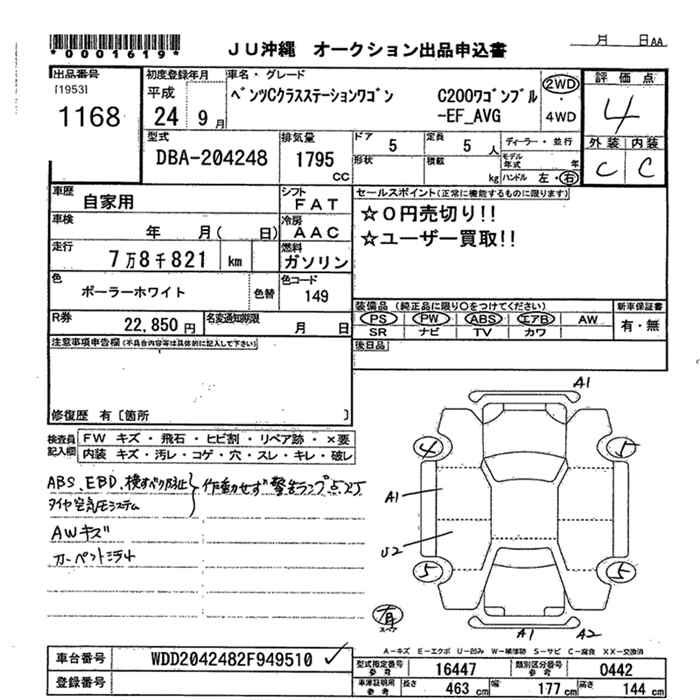 *0001619*
JU沖縄 オークション出品申込書
月 日AA
出品番号
[1953]
1168
初度登録年月
平成
24 9月
車名・グレード
ベンツCクラスステーションワゴン C200ワゴンブル
-EF_AVG
2WD
・
4WD
評価点
4
外装 内装
C C
型式
DBA-204248
排気量
1795
CC
ドア 5
定員 5人
形状
積載 kg
ディーラー・並行
モデル年式 年
ハンドル 左・右
車歴
自家用
シフト
FAT
セールスポイント(正常に機能するものに限ります)
☆0円売切り!!
☆ユーザー買取!!
車検
年 月( 日)
冷房
AAC
走行
7万8千821 km
燃料
ガソリン
色
ポーラーホワイト
色替
色コード
149
装備品(純正品に限り○をつけてください)
PS PW ABS エアB AW
SR ナビ TV カワ
新車保証書
有・無
R券
22,850円
名変通知期限
月 日
後日品
注意事項申告欄(不具合内容等は具体的に記入して下さい)
修復歴 有〔箇所 〕
検査員
記入欄
FW キズ・飛石・ヒビ割・リペア跡・×要
内装 キズ・汚レ・コゲ・穴・スレ・キレ・破レ
ABS、EBD、横すべり防止
タイヤ空気圧システム
作動せず警告ランプ点灯
AWキズ
カーペットシミ
A1
4 5
A1
U2
5 5
有
スペア
A1 A2
A-キズ E-エクボ U-凹み W-補修跡 S-サビ C-腐食 XX-交換済
車台番号
WDD2042482F949510
登録番号
型式指定番号
参考
16447
類別区分番号
参考
0442
車庫証明用
参考
長さ 463 cm
幅 177 cm
高さ 144 cm